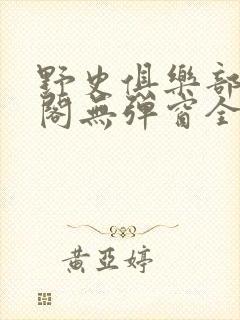 野史俱樂部
閣無彈窗全
黃亞婷